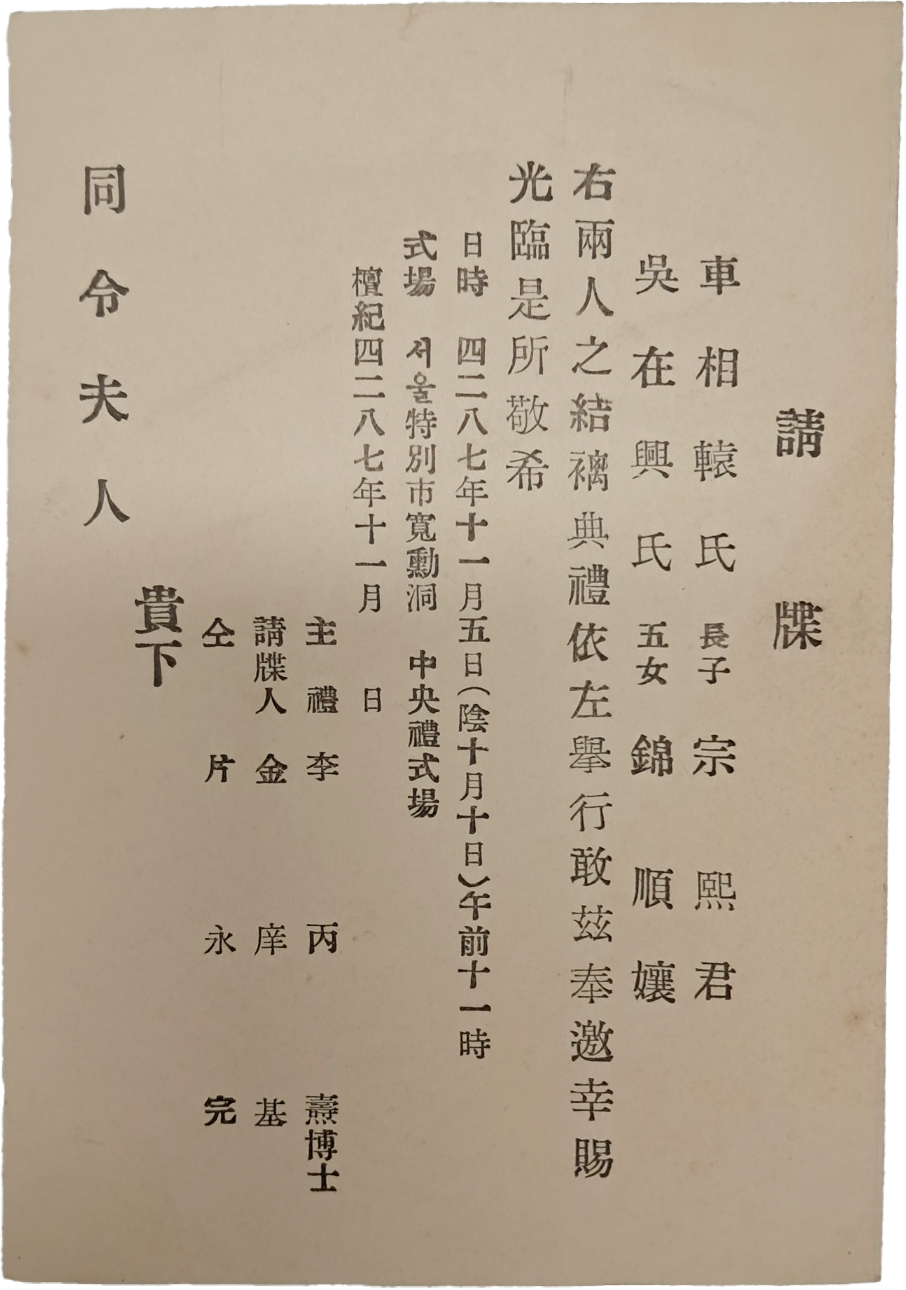 請牒
車相轅氏 長子 宗熙君
吳在興氏 五女 錦順孃
右兩人之結褵典禮依左擧行敢玆奉邀幸賜
光臨是所敬希
日時 四二八七年十一月五日(陰十月十日)午前十一時
式場 서울特別市寬勳洞 中央禮式場
檀紀四二八七年十一月 日
主禮 李丙燾博士
請牒人 金庠基
仝 片永完
貴下
同令夫人